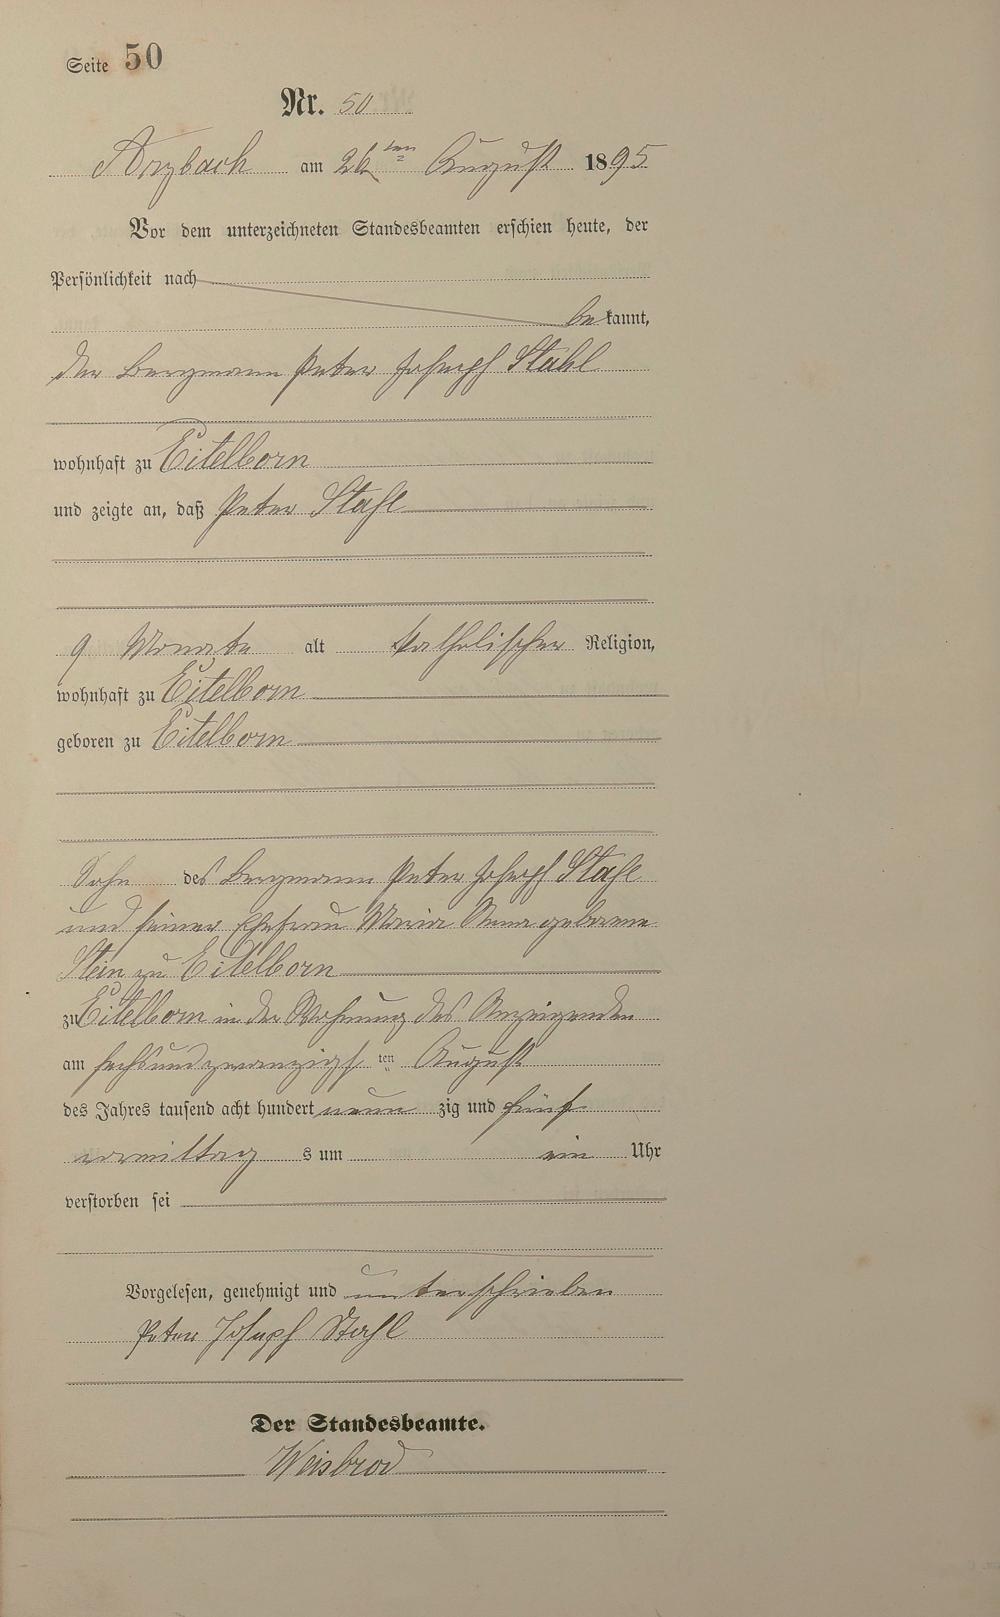 Seite 50
Nr. 50
Arzbach am 26ten August 1895
Vor dem unterzeichneten Standesbeamten erschien heute, der
Persönlichkeit nach
bekannt,
der Bergmann Peter Joseph Stahl
wohnhaft zu Eitelborn
und zeigte an, daß Peter Stahl
9 Monate alt katholischer Religion,
wohnhaft zu Eitelborn
geboren zu Eitelborn
Sohn des Bergmann Peter Joseph Stahl
und seiner Ehefrau Maria Anna geborene
Stein zu Eitelborn
zu Eitelborn in der Wohnung des Anzeigenden
am sechsundzwanzigsten August
des Jahres tausend acht hundert neunzig und fünf
vormittags um ein Uhr
verstorben sei
Vorgelesen, genehmigt und unterschrieben
Peter Joseph Stahl
Der Standesbeamte.
Weisbrod